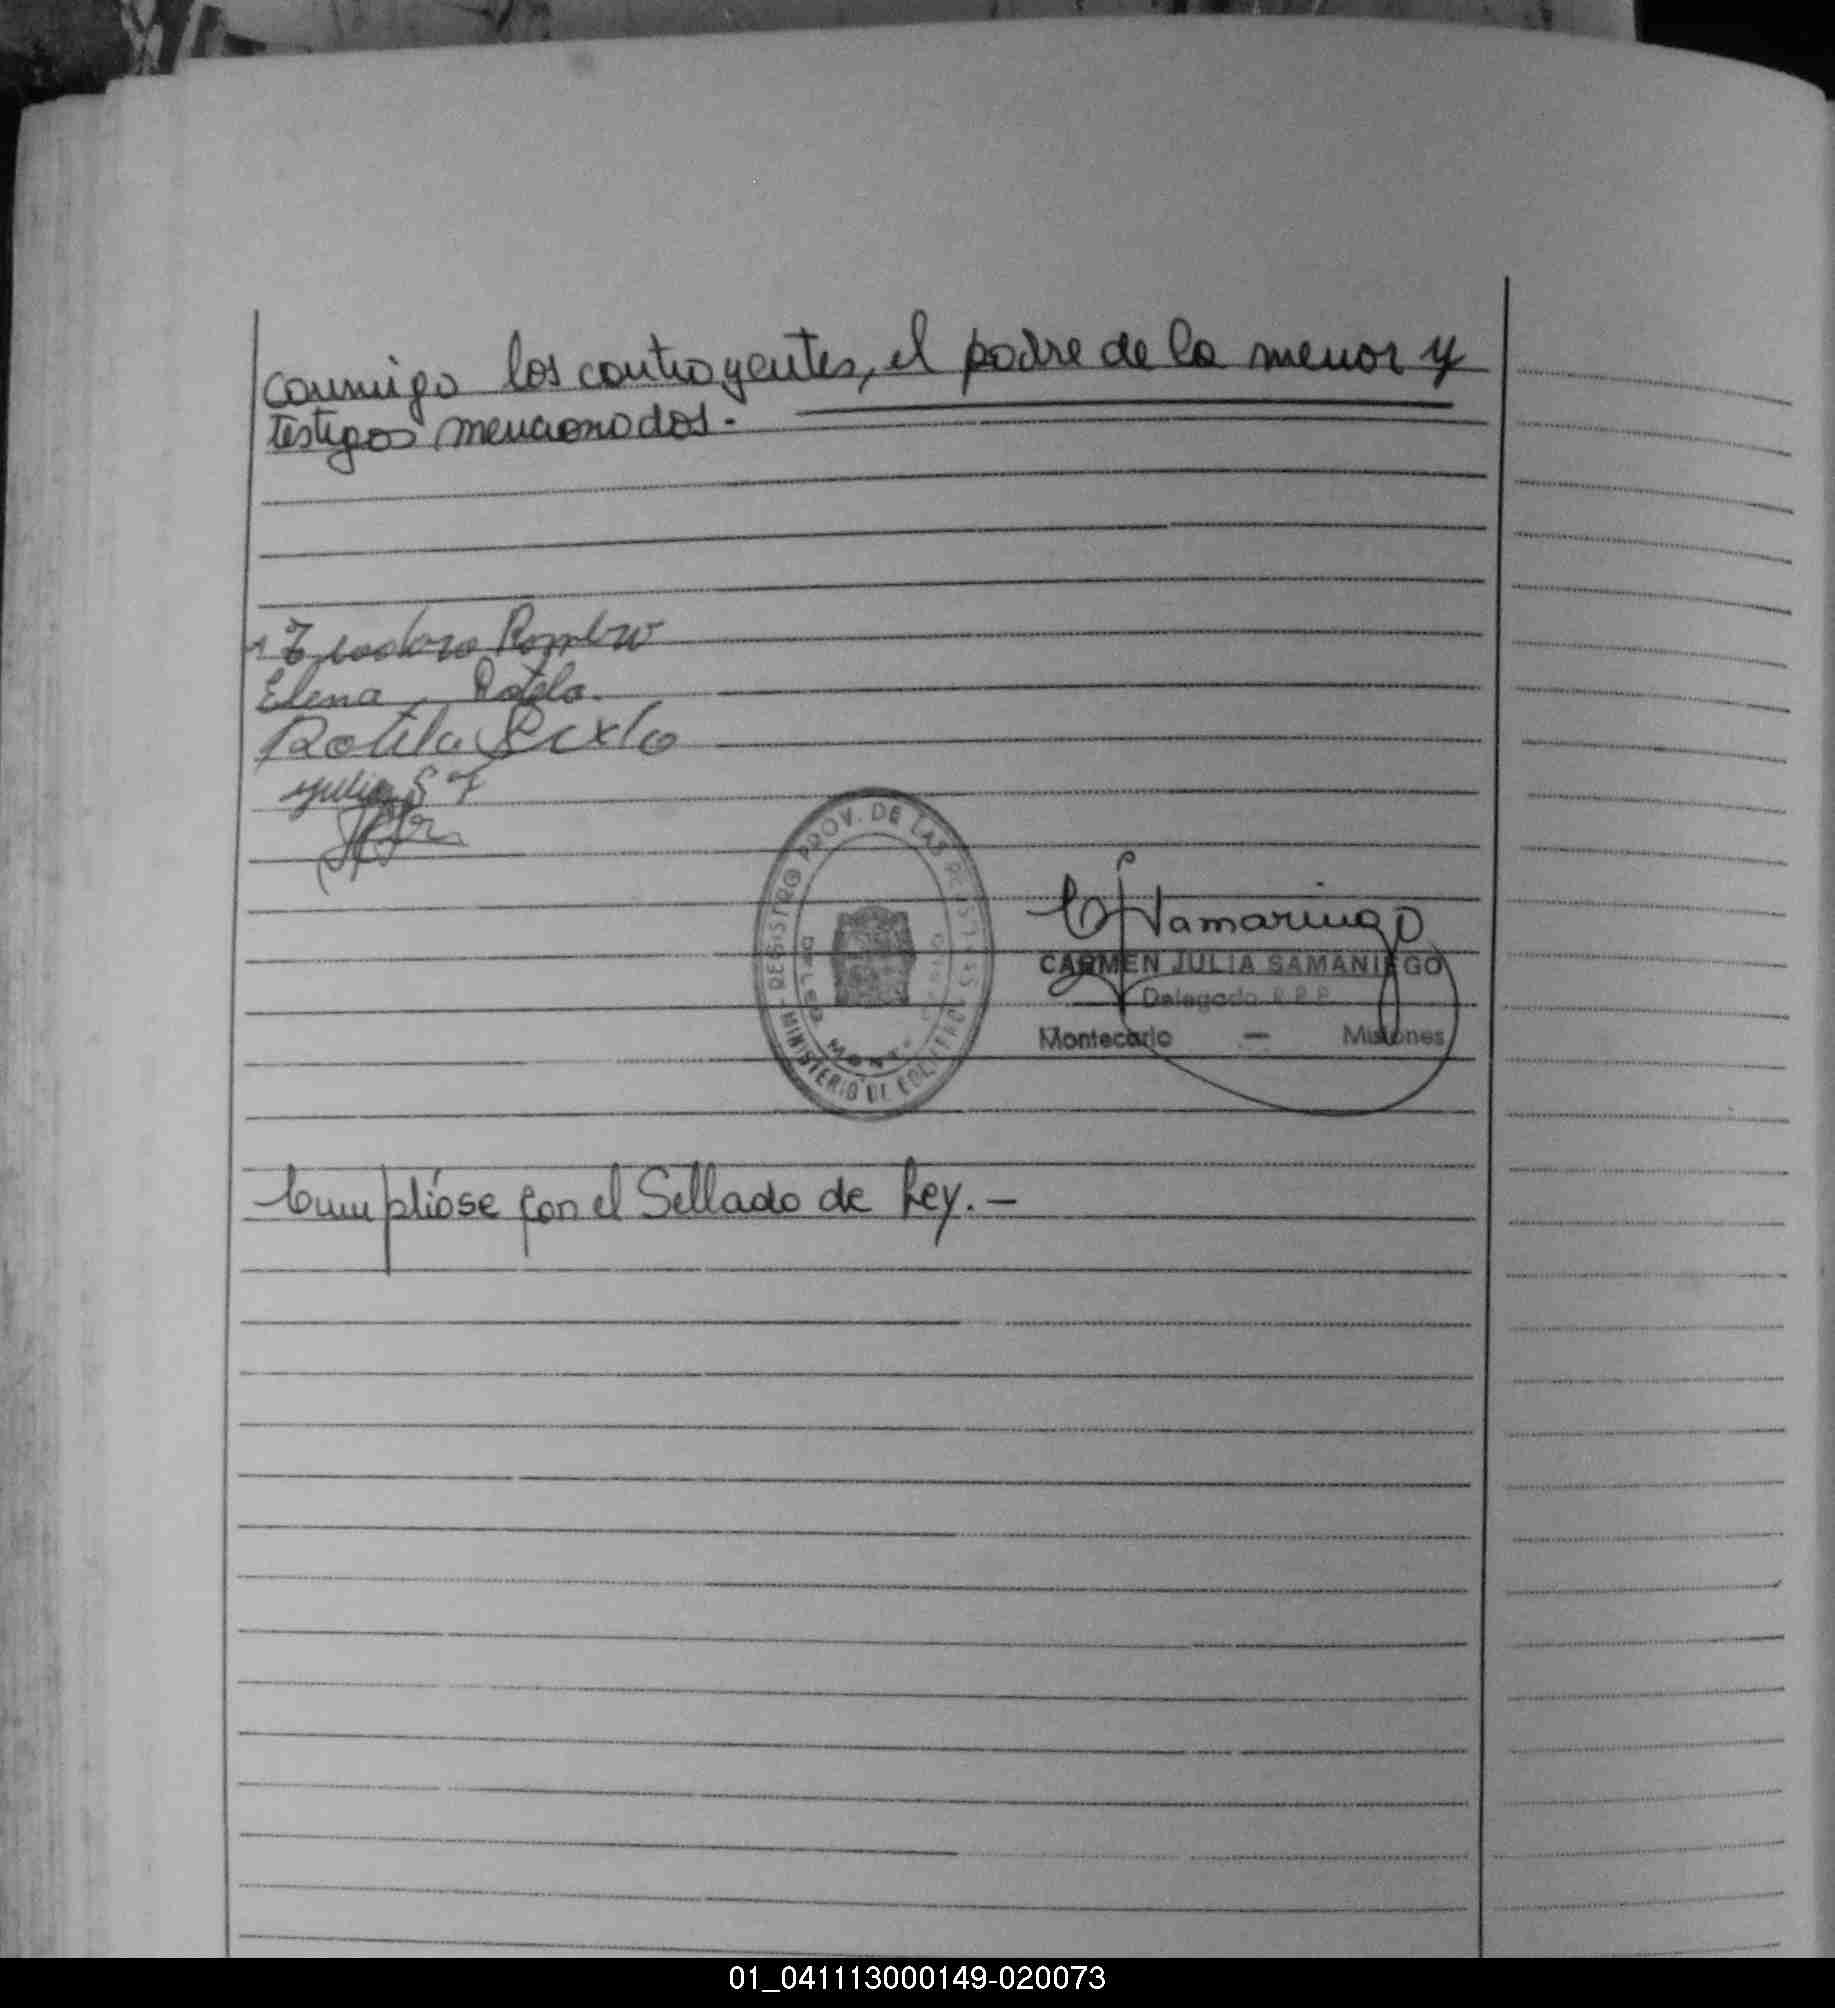 conmigo los contrayentes, el padre de la menor y
testigos mencionados.-
Teodoro Romero
Elena Rotela.
Rotela Sixto
Julio S F
REGISTRO PROV. DE LAS PERSONAS
MINISTERIO DE
DELEG MONT
C J Samaniego
CARMEN JULIA SAMANIEGO
Delegada R.P.P.
Montecarlo — Misiones
Cumplióse con el Sellado de Ley.-
01_041113000149-020073